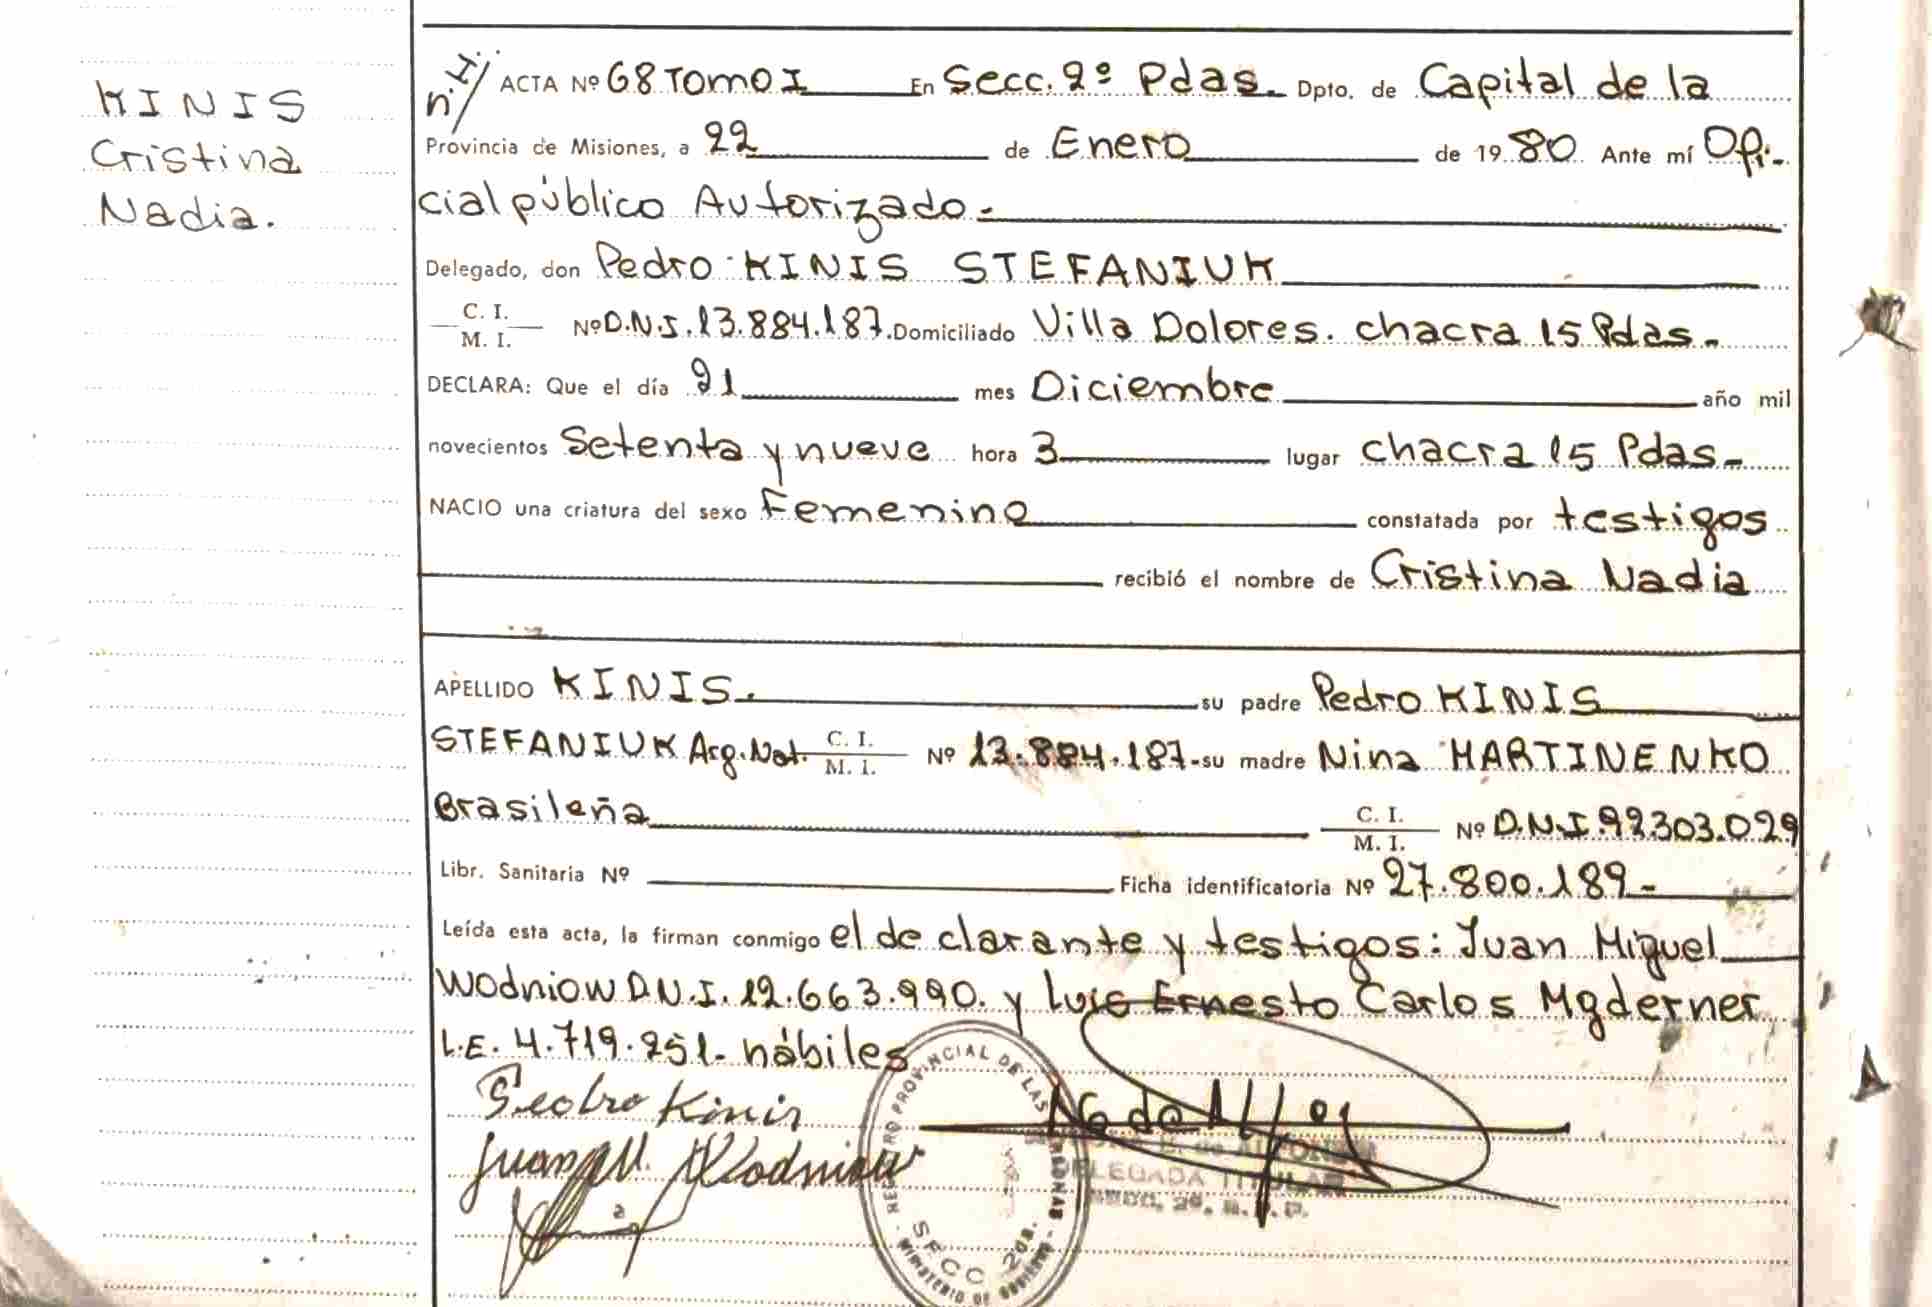 KINIS
Cristina
Nadia.
n.I/ ACTA Nº 68 Tomo I En Secc. 2º Pdas. Dpto. de Capital de la
Provincia de Misiones, a 22 de Enero de 1980 Ante mí Ofi-
cial público Autorizado.-
Delegado, don Pedro KINIS STEFANIUK
C. I.
M. I. Nº D.N.I. 13.884.187. Domiciliado Villa Dolores. chacra 15 Pdas.-
DECLARA: Que el día 21 mes Diciembre año mil
novecientos Setenta y nueve hora 3 lugar chacra 15 Pdas-
NACIO una criatura del sexo Femenino constatada por testigos
recibió el nombre de Cristina Nadia
APELLIDO KINIS. su padre Pedro KINIS
STEFANIUK Arg. Nat. C. I. M. I. Nº 13.884.187- su madre Nina MARTINENKO
Brasileña C. I. M. I. Nº D.N.I. 92303.029
Libr. Sanitaria Nº Ficha identificatoria Nº 27.800.189-
Leída esta acta, la firman conmigo el declarante y testigos: Juan Miguel
Wodniow D.N.I. 12.663.990. y Luis Ernesto Carlos Mgderner
L.E. 4.719.251- hábiles
Pedro Kinis
Juan M. Wodniow
REGISTRO PROVINCIAL DE LAS PERSONAS
MINISTERIO DE GOBIERNO
SECC 2da.
DELEGADA TITULAR
SECC. 2ª. R.P.P.